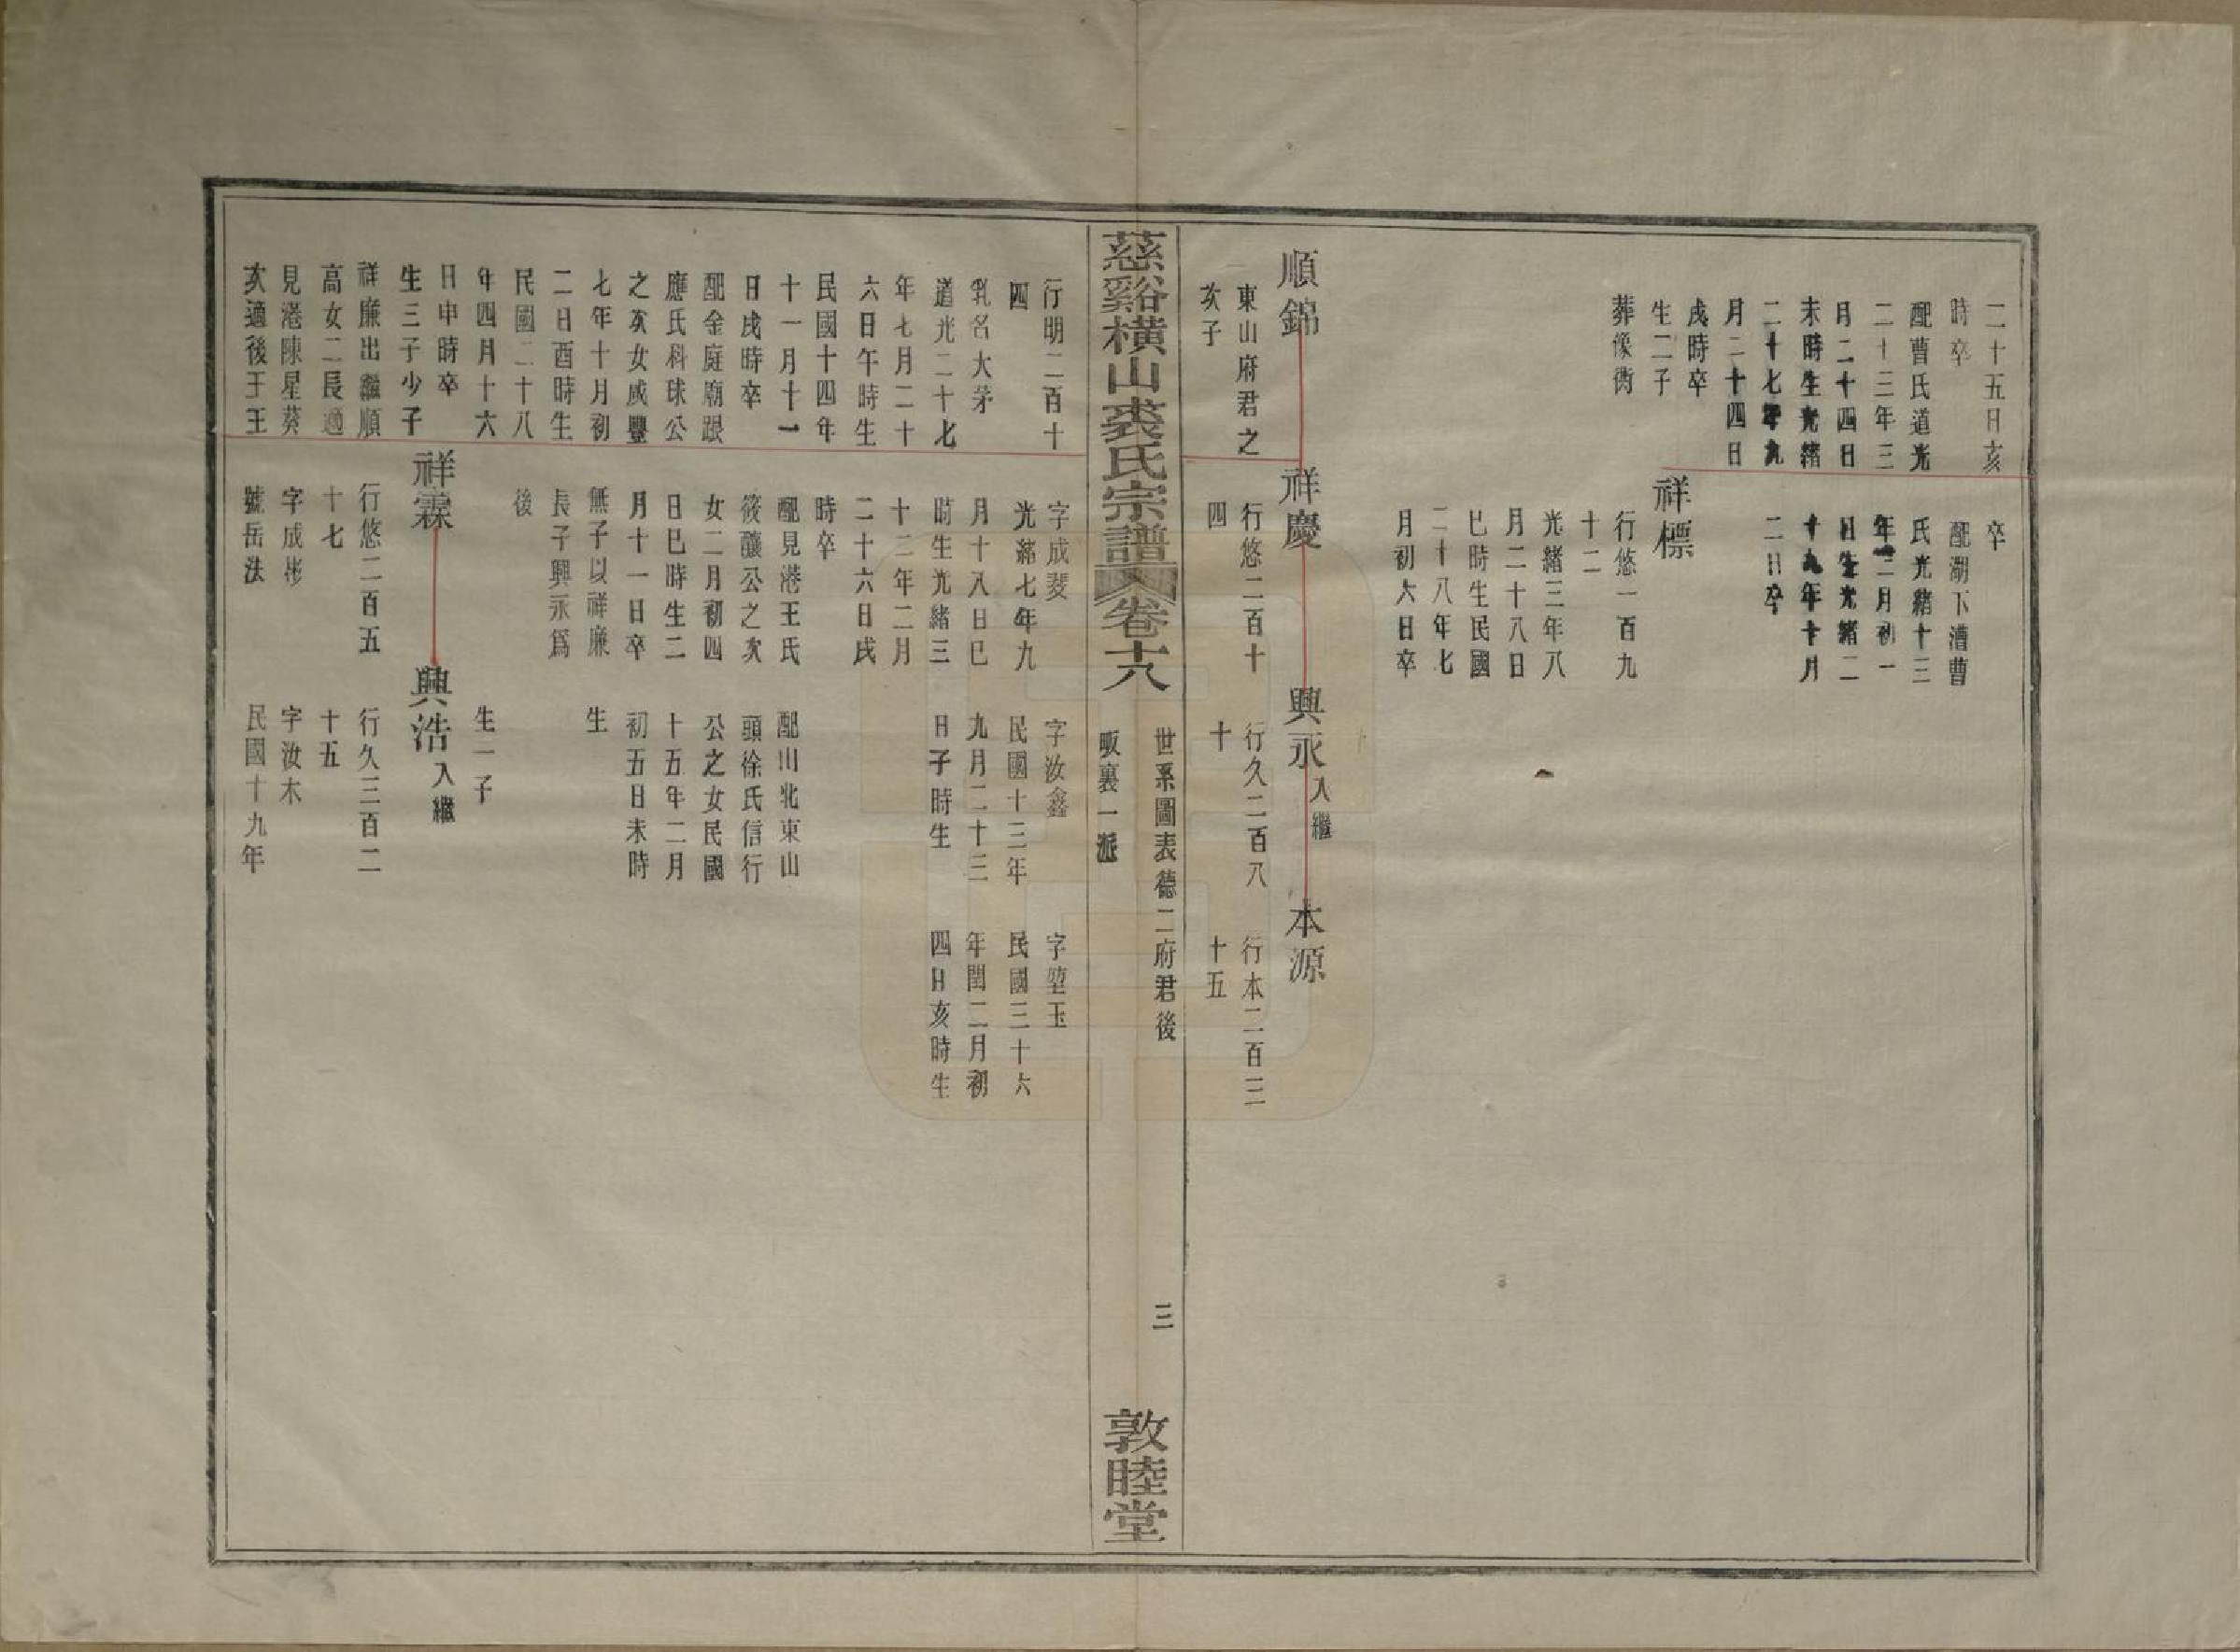 二十五日亥
時卒
配曹氏道光
二十三年三
月二十四日
未時生光緒
二十七年九
月二十四日
戌時卒
生二子
葬像衖
卒
配湖下漕曹
氏光緒十三
年二月初一
日生光緒二
十九年十月
二日卒
祥標
行悠一百九
十二
光緒三年八
月二十八日
巳時生民國
二十八年七
月初六日卒
順錦
東山府君之
次子
祥慶
行悠二百十
四
興永入繼
行久二百八
十
本源
行本二百三
十五
慈谿橫山裘氏宗譜
卷十八
世系圖表德二府君後
畈裏一派
三
敦睦堂
行明二百十
四
乳名大茅
道光二十七
年七月二十
六日午時生
民國十四年
十一月十一
日戌時卒
配金庭廟跟
應氏科球公
之次女咸豐
七年十月初
二日酉時生
民國二十八
年四月十六
日申時卒
生三子少子
祥廉出繼順
高女二長適
見港陳星葵
次適後王王
字成斐
光緒七年九
月十八日巳
時生光緒三
十二年二月
二十六日戌
時卒
配見港王氏
筱釀公之次
女二月初四
日巳時生二
月十一日卒
無子以祥廉
長子興永爲
後
字汝鑫
民國十三年
九月二十三
日子時生
配山北東山
頭徐氏信行
公之女民國
十五年二月
初五日未時
生
生一子
字堃玉
民國三十六
年閏二月初
四日亥時生
祥霖
行悠二百五
十七
字成彬
號岳法
興浩入繼
行久三百二
十五
字汝木
民國十九年